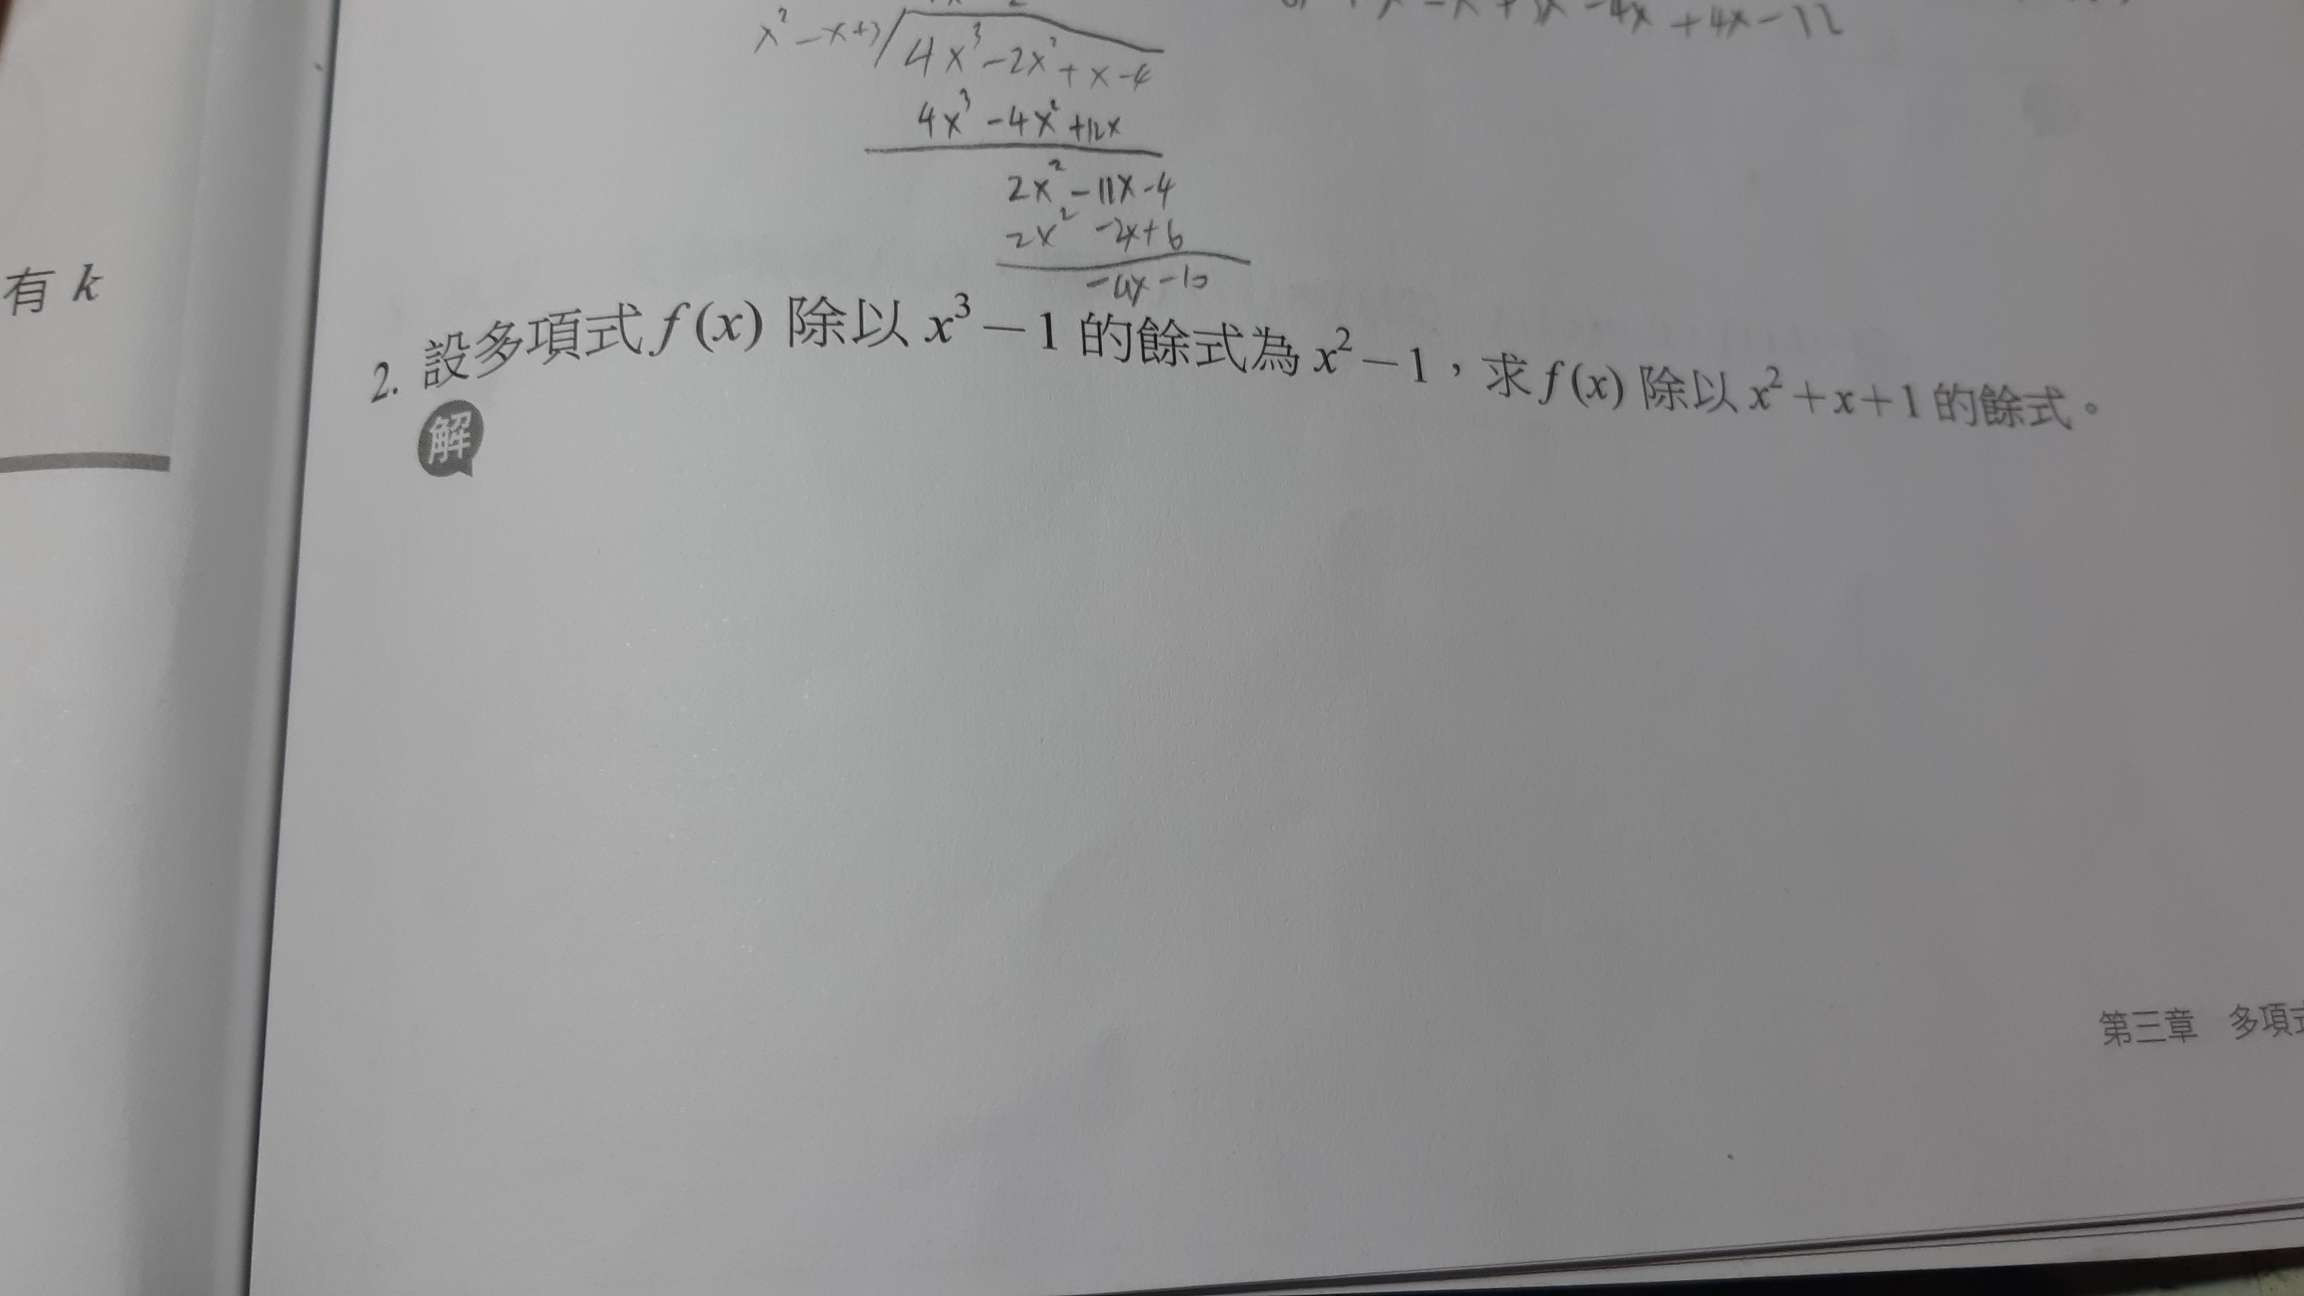 x² - x + 3 4x³ - 2x² + x - 4
+ 4x - 12
4x³ - 4x² + 12x
2x² - 11x - 4
2x² - 2x + 6
有 k
2. 設多項式 f(x) 除以 x³－1 的餘式為 x²－1，求 f(x) 除以 x²＋x＋1 的餘式。
解
第三章 多項式